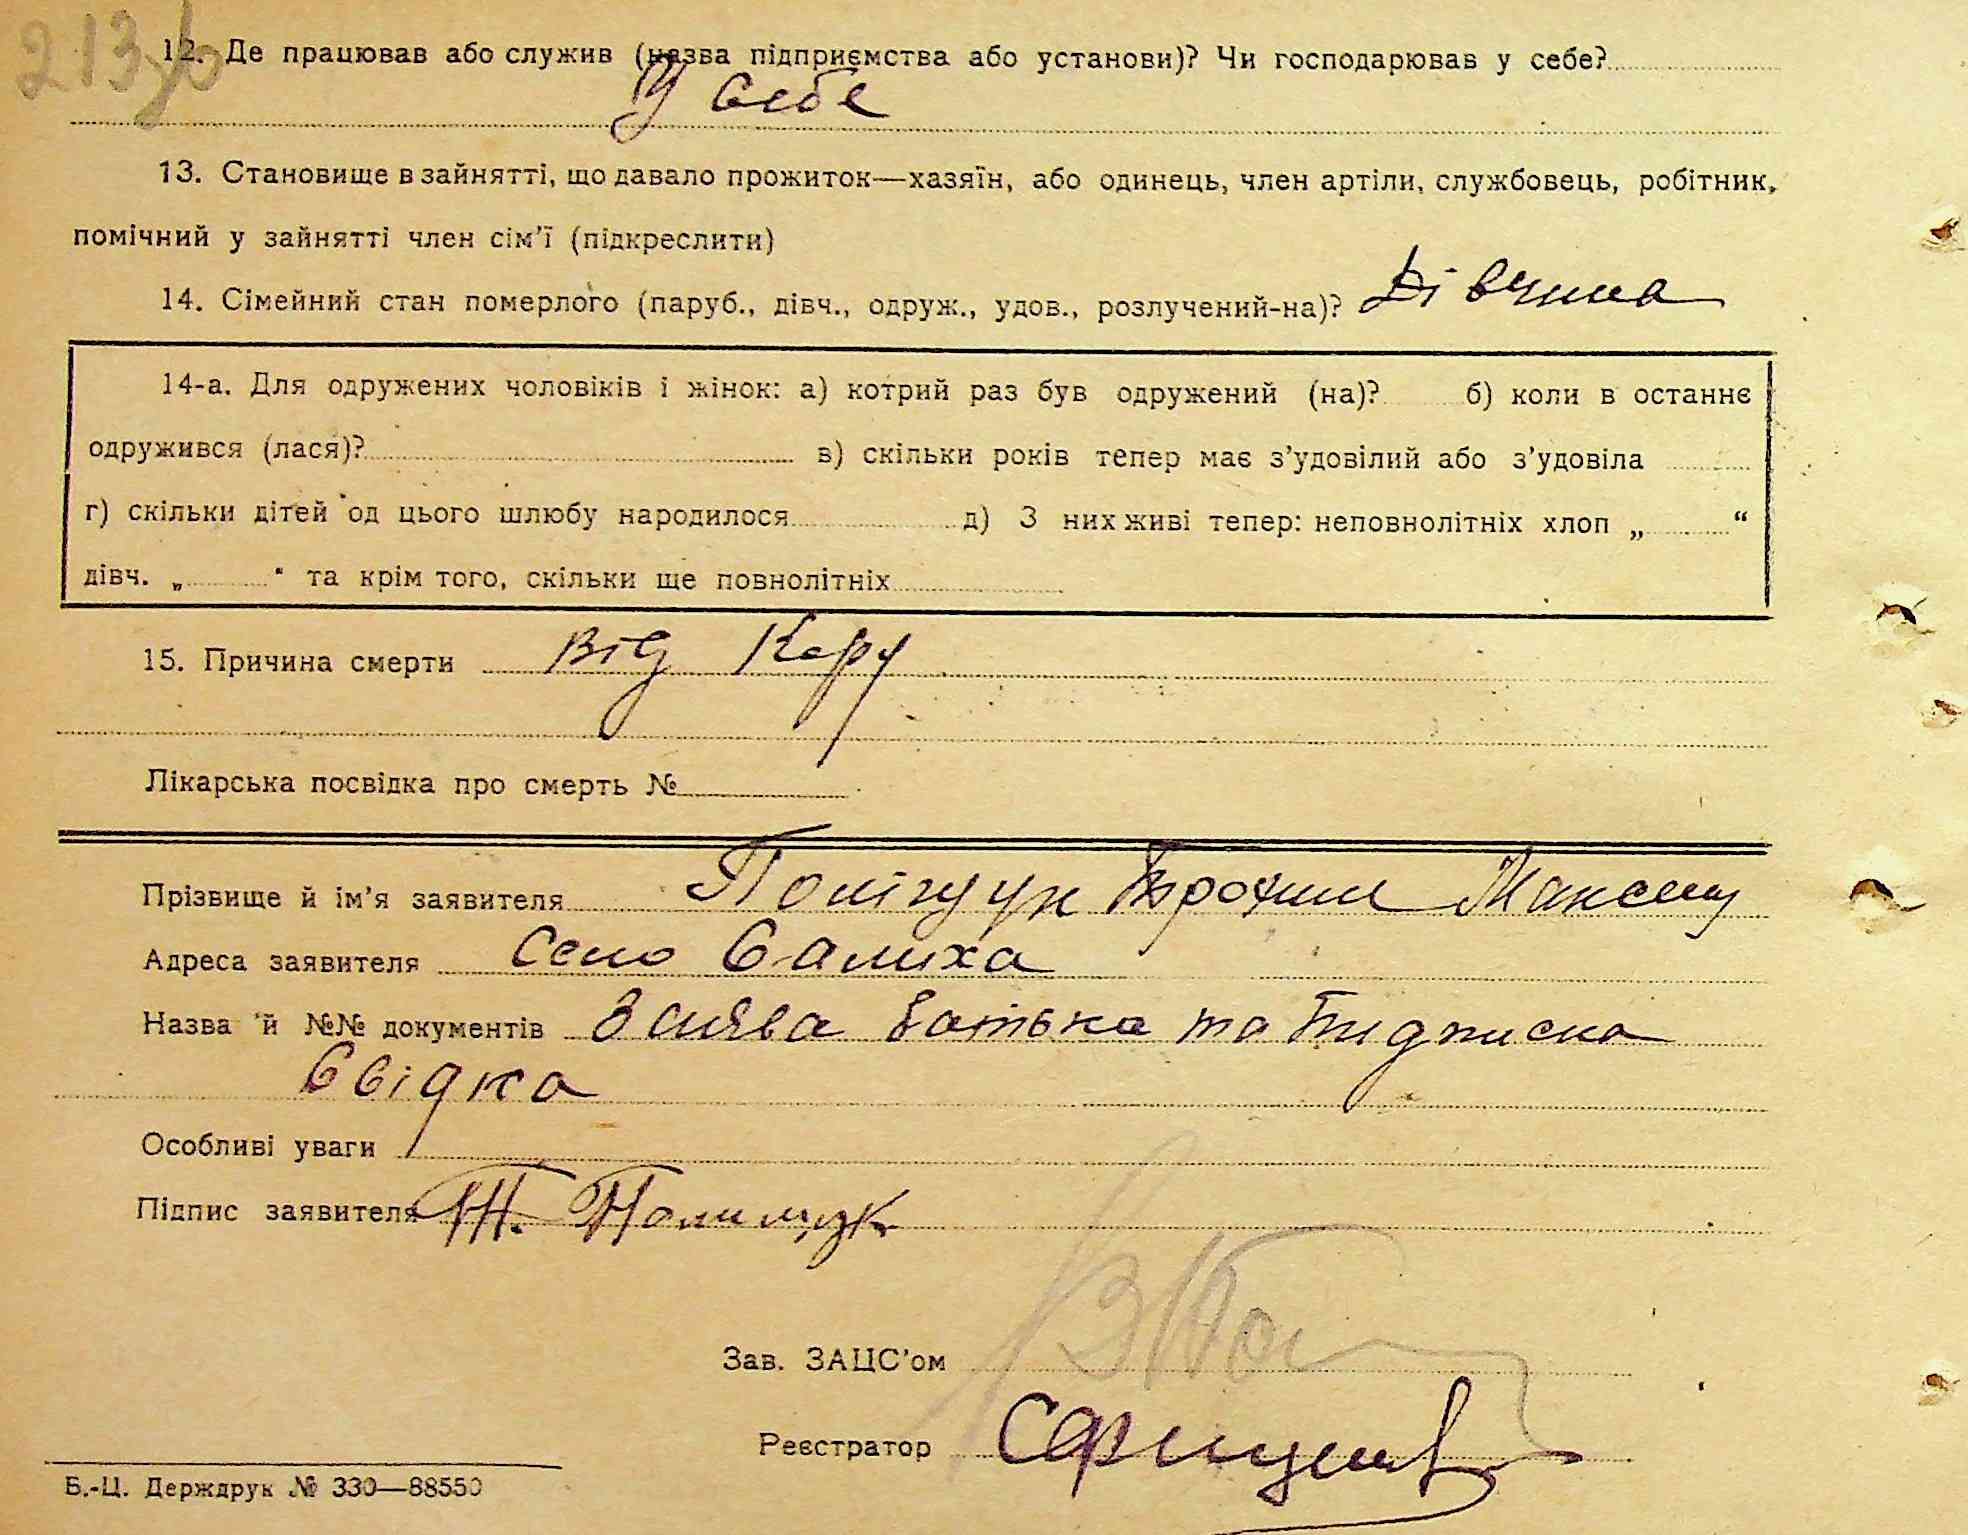 213зв
12. Де працював або служив (назва підприємства або установи)? Чи господарював у себе?
У себе
13. Становище в зайнятті, що давало прожиток—хазяїн, або одинець, член артіли, службовець, робітник,
помічний у зайнятті член сім'ї (підкреслити)
14. Сімейний стан померлого (паруб., дівч., одруж., удов., розлучений-на)? Дівчина
14-а. Для одружених чоловіків і жінок: а) котрий раз був одружений (на)? б) коли в останнє
одружився (лася)? в) скільки років тепер має з'удовілий або з'удовіла
г) скільки дітей од цього шлюбу народилося д) З них живі тепер: неповнолітніх хлоп „ “
дівч. „ “ та крім того, скільки ще повнолітніх
15. Причина смерти від Кору
Лікарська посвідка про смерть №
Прізвище й ім'я заявителя Поліщук Трохим Максим
Адреса заявителя Село Салиха
Назва й №№ документів Заява батька та Підписка
Свідка
Особливі уваги
Підпис заявителя Т. Полищук
Зав. ЗАЦС'ом
Реєстратор
Б.-Ц. Держдрук № 330—88550